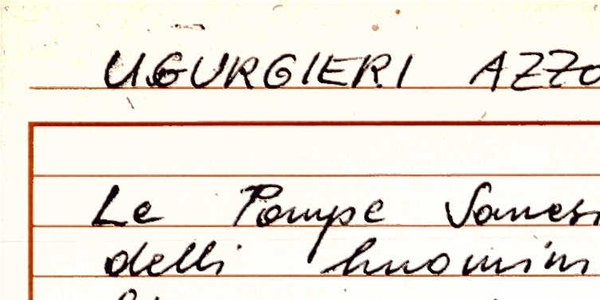 UGURGIERI AZZO
Le Pompe Sanesi
delli huomini